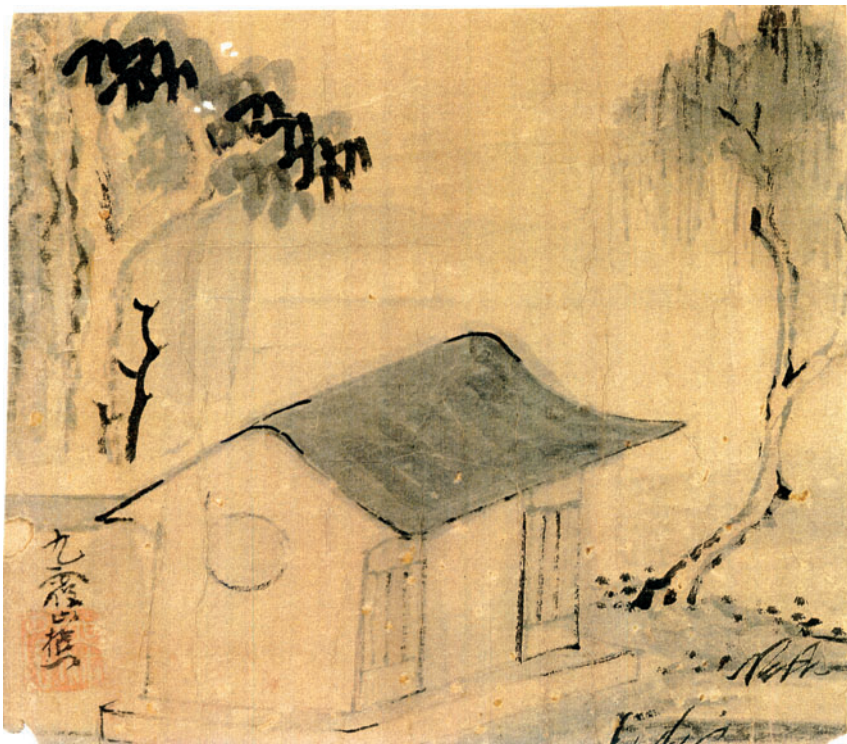 九霞山樵